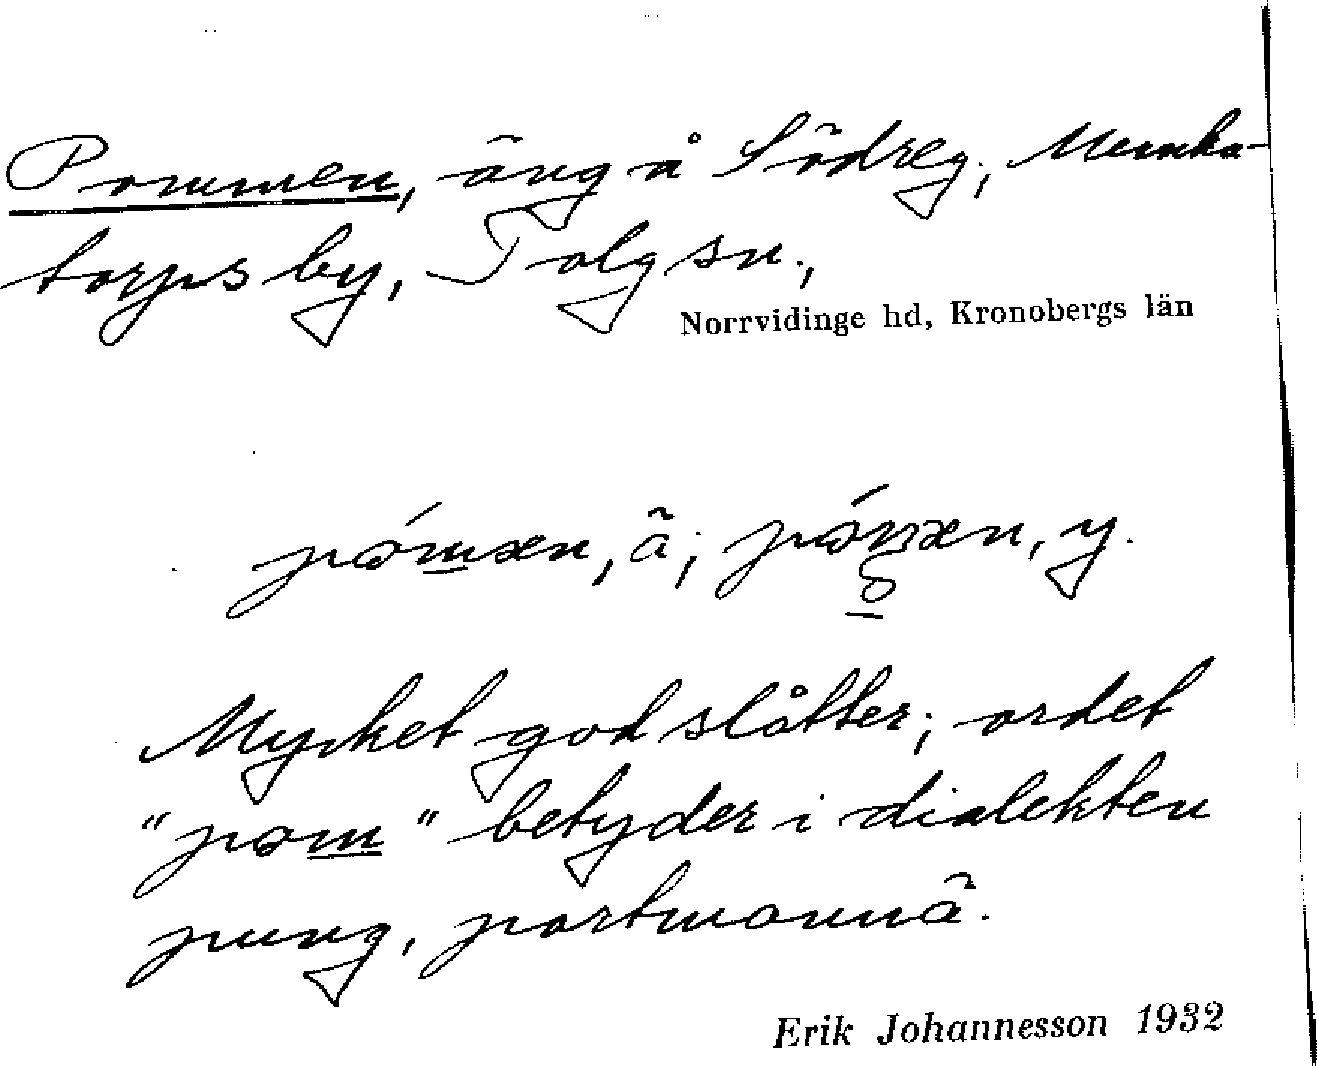 Pommen, äng å Södreg, Munka-
torps by, Tolg sn.,
Norrvidinge hd, Kronobergs län
ä; y.
Mycket god slåtter; ordet
"pom" betyder i dialekten
pung, portmonnä.
Erik Johannesson 1932